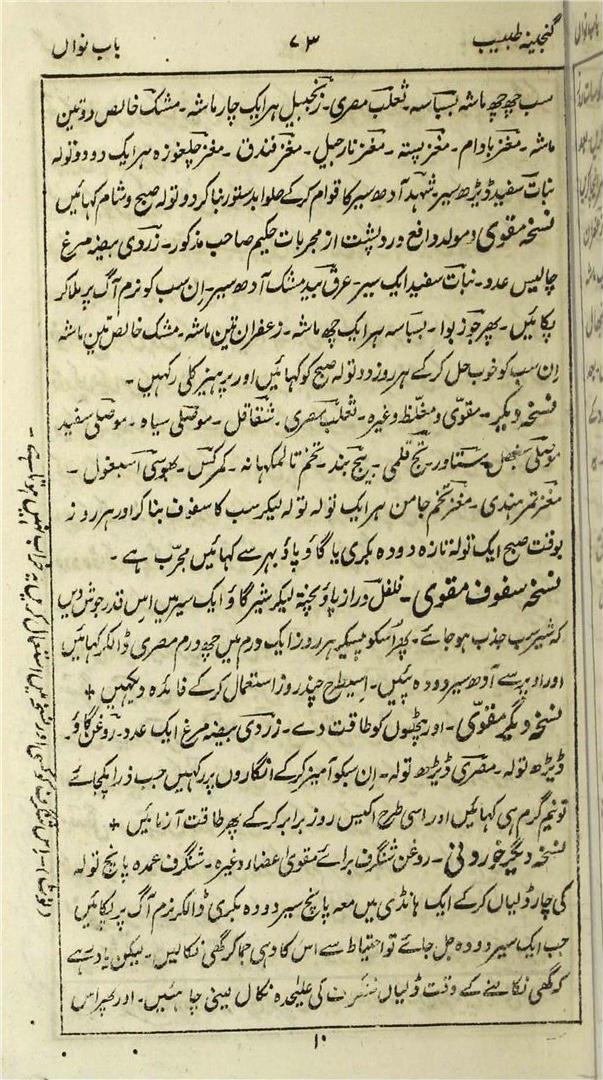 گنجینہ طبیب ۷۳ باب نواں
سب چھ چھ ماشہ بسباسہ۔ ثعلب مصری۔ زنجبیل ہر ایک چار ماشہ۔ مشک خالص دو تین
ماشہ۔ مغز بادام۔ مغز پستہ۔ مغز نارجیل۔ مغز فندق۔ مغز چلغوزہ ہر ایک دو دو تولہ
نبات سفید ڈیڑھ سیر۔ شہد آدھ سیر کا قوام کر کے حلوا بدستور بنا کر دو تولہ صبح و شام کہائیں
نسخہ مقوی و مولد دافع درد پشت از مجربات حکیم صاحب مذکور۔ زردی بیضہ مرغ
چالیس عدد۔ نبات سفید ایک سیر۔ عرق بید مشک آدھ سیر۔ ان سب کو نرم آگ پر ملا کر
پکائیں۔ پھر جوز بوا۔ بسباسہ ہر ایک چھ ماشہ۔ زعفران تین ماشہ۔ مشک خالص تین ماشہ
ان سب کو خوب حل کر کے ہر روز دو تولہ صبح کو کہائیں اور پرہیز کلی رکہیں۔
نسخہ دیگر۔ مقوی و مغلظ وغیرہ۔ ثعلب مصری۔ شقاقل۔ موصلی سیاہ۔ موصلی سفید
موصلی سنبھل۔ ستاور۔ تج قلمی۔ بیج بند۔ تخم تالمکہانہ۔ کمرکس۔ بھوسی اسبغول۔
مغز تمر ہندی۔ مغز تخم جامن ہر ایک تولہ تولہ لیکر سب کا سفوف بنا کر اور ہر روز
بوقت صبح ایک تولہ تازہ دودہ بکری یا گاؤ پاؤ بہر سے کہائیں مجرب ہے۔
نسخہ سفوف مقوی۔ فلفل دراز پاؤ پختہ لیکر شیر گاؤ ایک سیر میں اس قدر جوش دیں
کہ شیر سب جذب ہو جائے۔ پھر اسکو پیسکر ہر روز ایک درم میں چھ درم مصری ڈالکر کہائیں
اور اوپر سے آدھ سیر دودہ پئیں۔ اسیطرح چند روز استعمال کر کے فائدہ دیکہیں +
نسخہ دیگر مقوی۔ اور پٹہوں کو طاقت دے۔ زردی بیضہ مرغ ایک عدد۔ روغن گاؤ
ڈیڑھ تولہ۔ مصری ڈیڑھ تولہ۔ ان سبکو آمیز کر کے انگاروں پر رکہیں جب ذرا پکجائے
تو نیم گرم ہی کہائیں اور اسی طرح اکیس روز برابر کر کے پھر طاقت آزمائیں +
نسخہ دیگر خوردنی۔ روغن شنگرف برائے مقوی اعضاء وغیرہ۔ شنگرف عمدہ پانچ تولہ
کی چار ڈلیاں کر کے ایک ہانڈی میں معہ پانچ سیر دودہ بکری ڈالکر نرم آگ پر پکائیں
جب ایک سیر دودہ جل جائے تو احتیاط سے اس کا دہی جما کر گھی نکالیں۔ لیکن یاد رہے
کہ گھی نکالنے کے وقت ڈلیاں شنگرف کی علیحدہ نکال لینی چاہئیں۔ اور پھر اس
۱۰